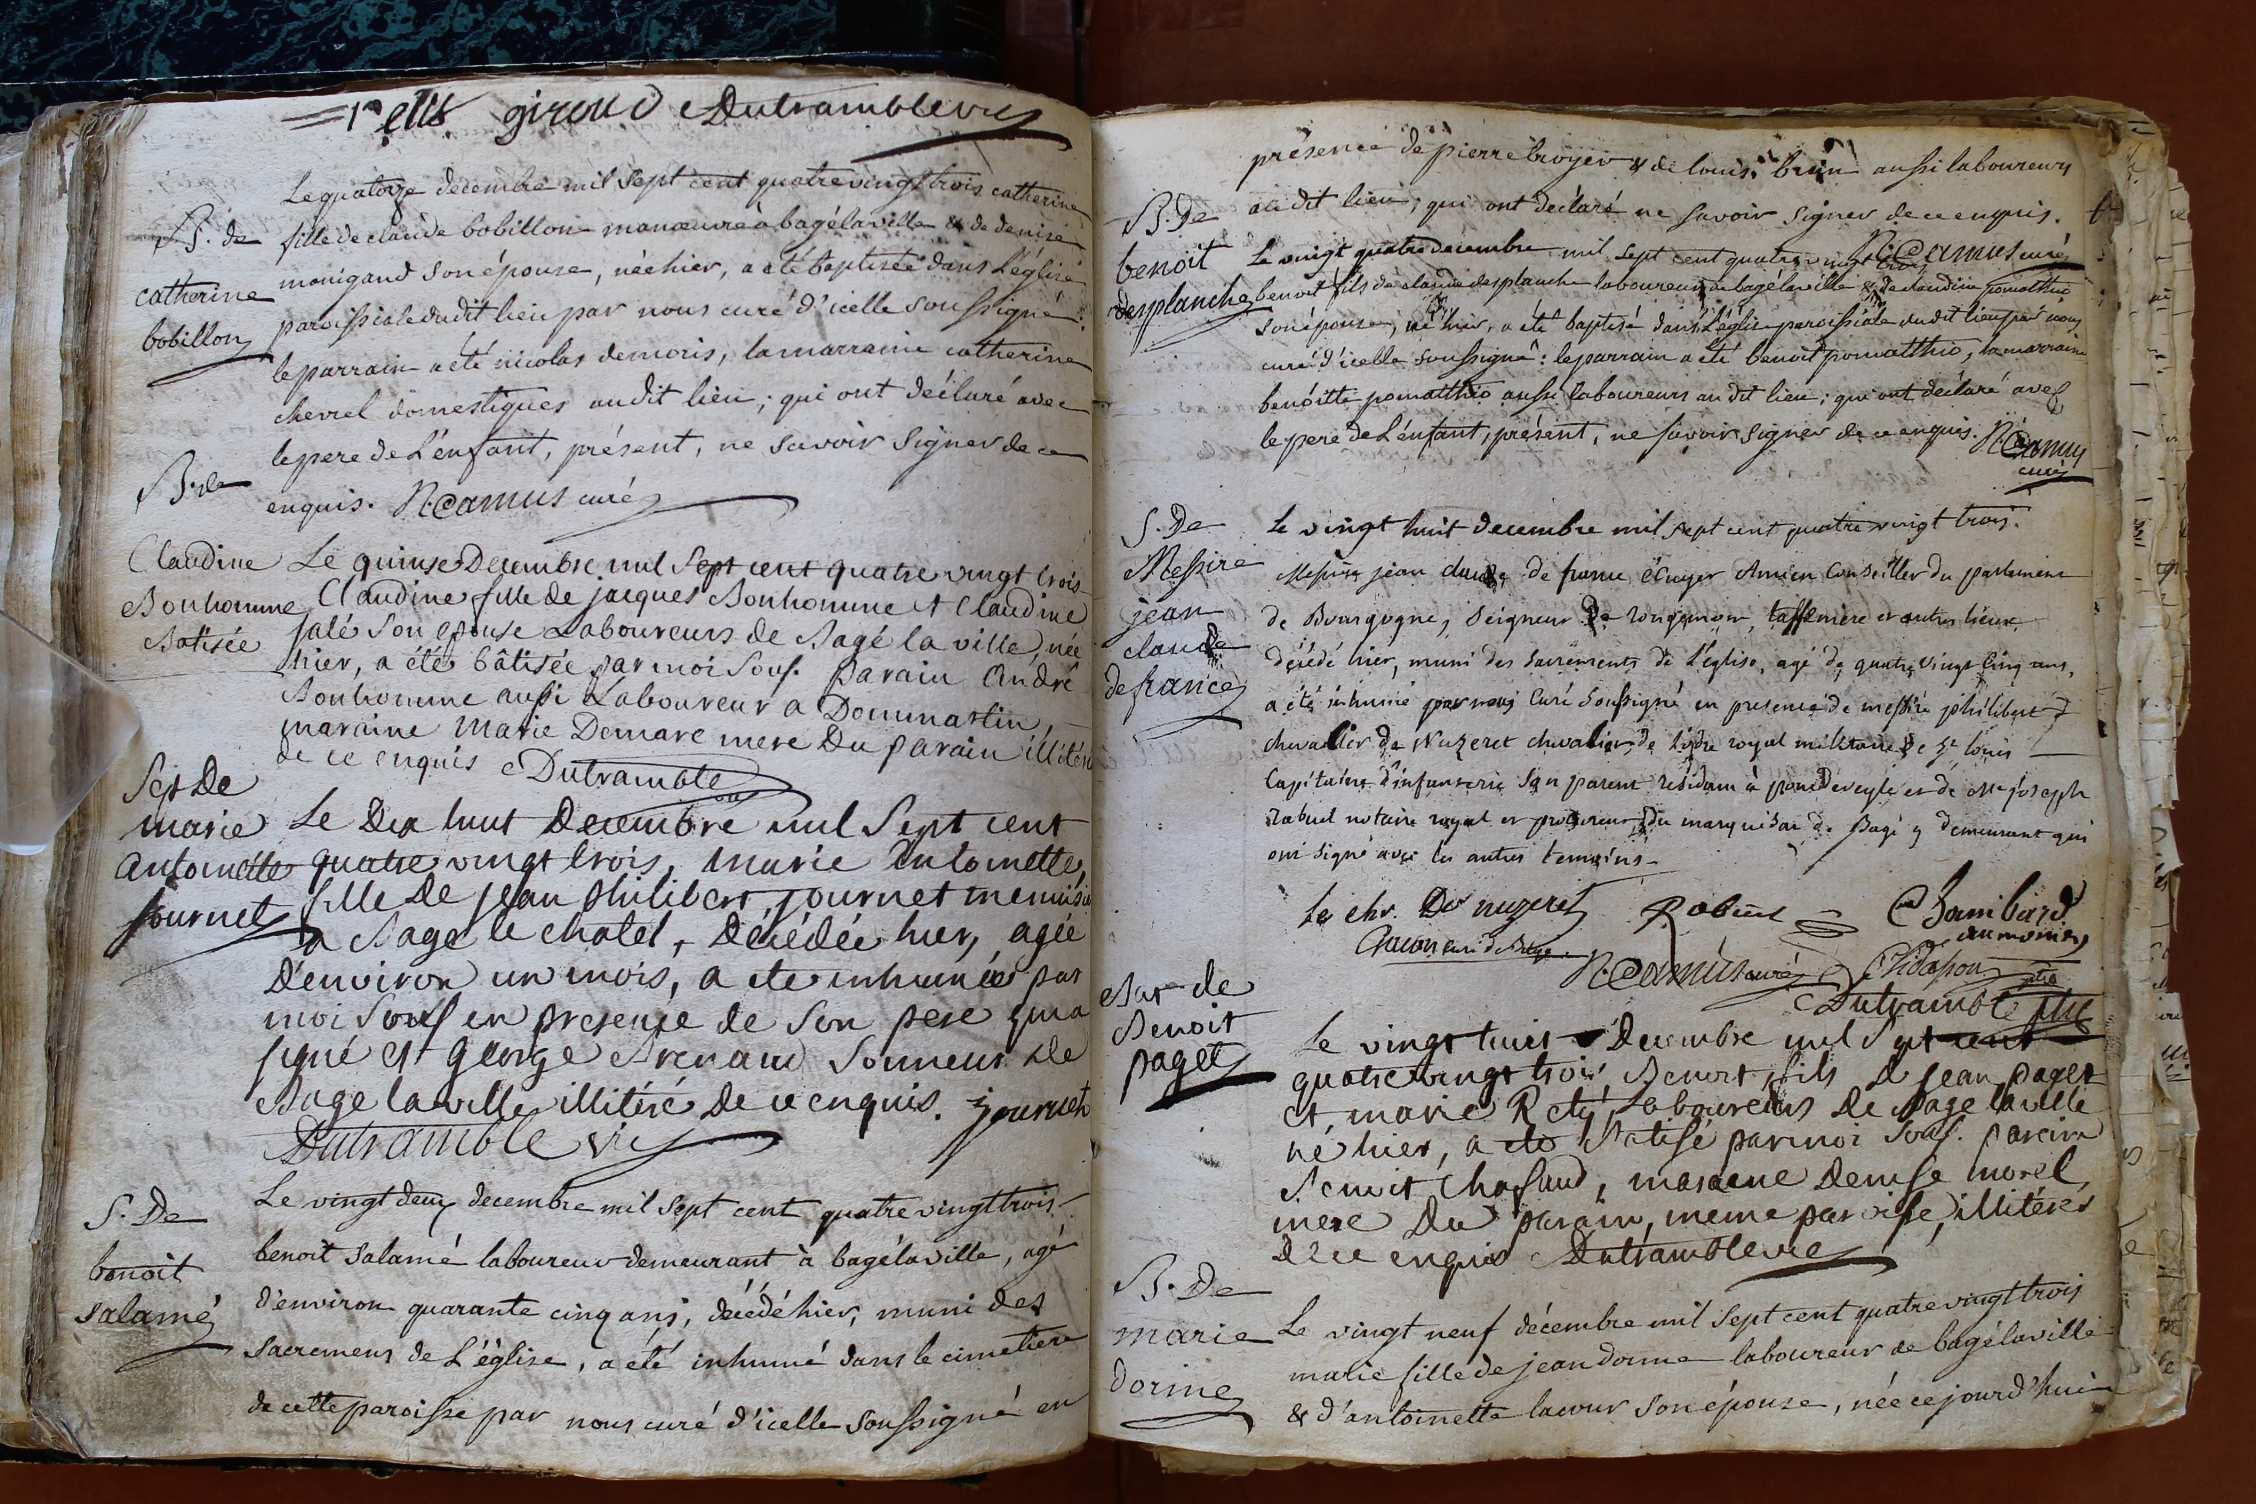 petit giroud Dutramblevic
B. de
catherine
bobillon
Le quatorze decembre mil sept cent quatrevingt trois catherine
fille de claude bobillon manœuvre à bagélaville & de denise
monigand son épouse, née hier, a été baptisée dans L'église
paroissiale dudit lieu par nous curé d'icelle soussigné:
le parrain a été nicolas demoris, la marraine catherine
chevrel domestiques audit lieu; qui ont déclaré avec
le pere de L'énfant, présent, ne savoir signer de ce
enquis. N. Camus curé
B. de
Claudine
Bonhomme
Batisée
Le quinse Decembre mil Sept cent quatre vingt trois
Claudine fille de jacques Bonhomme et Claudine
jalé son epouse Laboureurs de Bagé la ville, née
hier, a été bâtisée par moi Sous. parain André
Bonhomme aussi Laboureur a Dommartin,
maraine Marie Demare mere Du parain illitérés
de ce enquis Dutramble
vic
Sep. De
marie
antoinette
journet
Le Dix huit Decembre mil Sept cent
quatre vingt trois, marie Antoinette,
fille De jean philibert journet menuisier
a Bage le chatel, Décédée hier, agée
D'environ un mois, a ete inhumée par
moi Sous en presence de Son pere qui a
signé et George Arenaud Sonneur de
Bage la ville illitéré De ce enquis. journet
Dutramble vic
S. De
benoit
salamé
Le vingt deux decembre mil sept cent quatre vingt trois
benoit salamé laboureur demeurant à bagélaville, agé
d'environ quarante cinq ans, décédé hier, muni des
sacremens de L'église, a été inhumé dans le cimetiere
de cette paroisse par nous curé d'icelle soussigné en
présence de pierre broyer & de louis brun aussi laboureurs
audit lieu; qui ont déclaré ne savoir signer de ce enquis.
N. Camus curé
B. De
benoit
desplanche
Le vingt quatre decembre mil sept cent quatre vingt trois
benoit fils de claude desplanche laboureur de bagélaville & de claudine pomatthio
son épouse, né hier, a été baptisé dans L'église paroissiale dudit lieu par nous
curé d'icelle soussigné: le parrain a été benoit pomatthio, la marraine
benoitte pomatthio aussi laboureurs audit lieu; qui ont déclaré avec
le pere de L'énfant, présent, ne savoir signer de ce enquis. N. Camus
curé
S. De
Messire
jean
claude
de france
Le vingt huit decembre mil sept cent quatre vingt trois.
Messire jean claude de france écuyer Ancien Conseiller du parlement
de Bourgogne, Seigneur de rougemont, et autres lieux
décédé hier, muni des sacrements de L'église, agé de quatre vingt Cinq ans,
a été inhumé par nous Curé soussigné en presence de messire philibert
chevallier de Nuzeret chevalier de L'ordre royal militaire de St louis
Capitaine D'infanterie son parent residant à pondeveyle et de Me joseph
Rabuel notaire royal et procureur du marquisat de Bagé y demeurant qui
ont signé avec les autres temoins
Le chr. De nuzeret Rabuel Chambard
aumonier
curé de Bagé N. Camus curé
Dutramble vic
Bat de
Benoit
paget
Le vingt huit Decembre mil Sept cent
quatre vingt trois, Benoit, fils De jean paget
et marie Rety, Laboureurs De Bage la ville
né hier, a ete Batisé par moi Sous. parain
Benoit Chafaud, maraine Denise morel
mere Du parain, meme paroisse, illitérés
De ce enquis Dutramblevic
B. De
marie
dorine
Le vingt neuf décembre mil sept cent quatre vingt trois
marie fille de jean dorine laboureur de bagélaville
& d'antoinette lacour son épouse, née ce jourd'hui